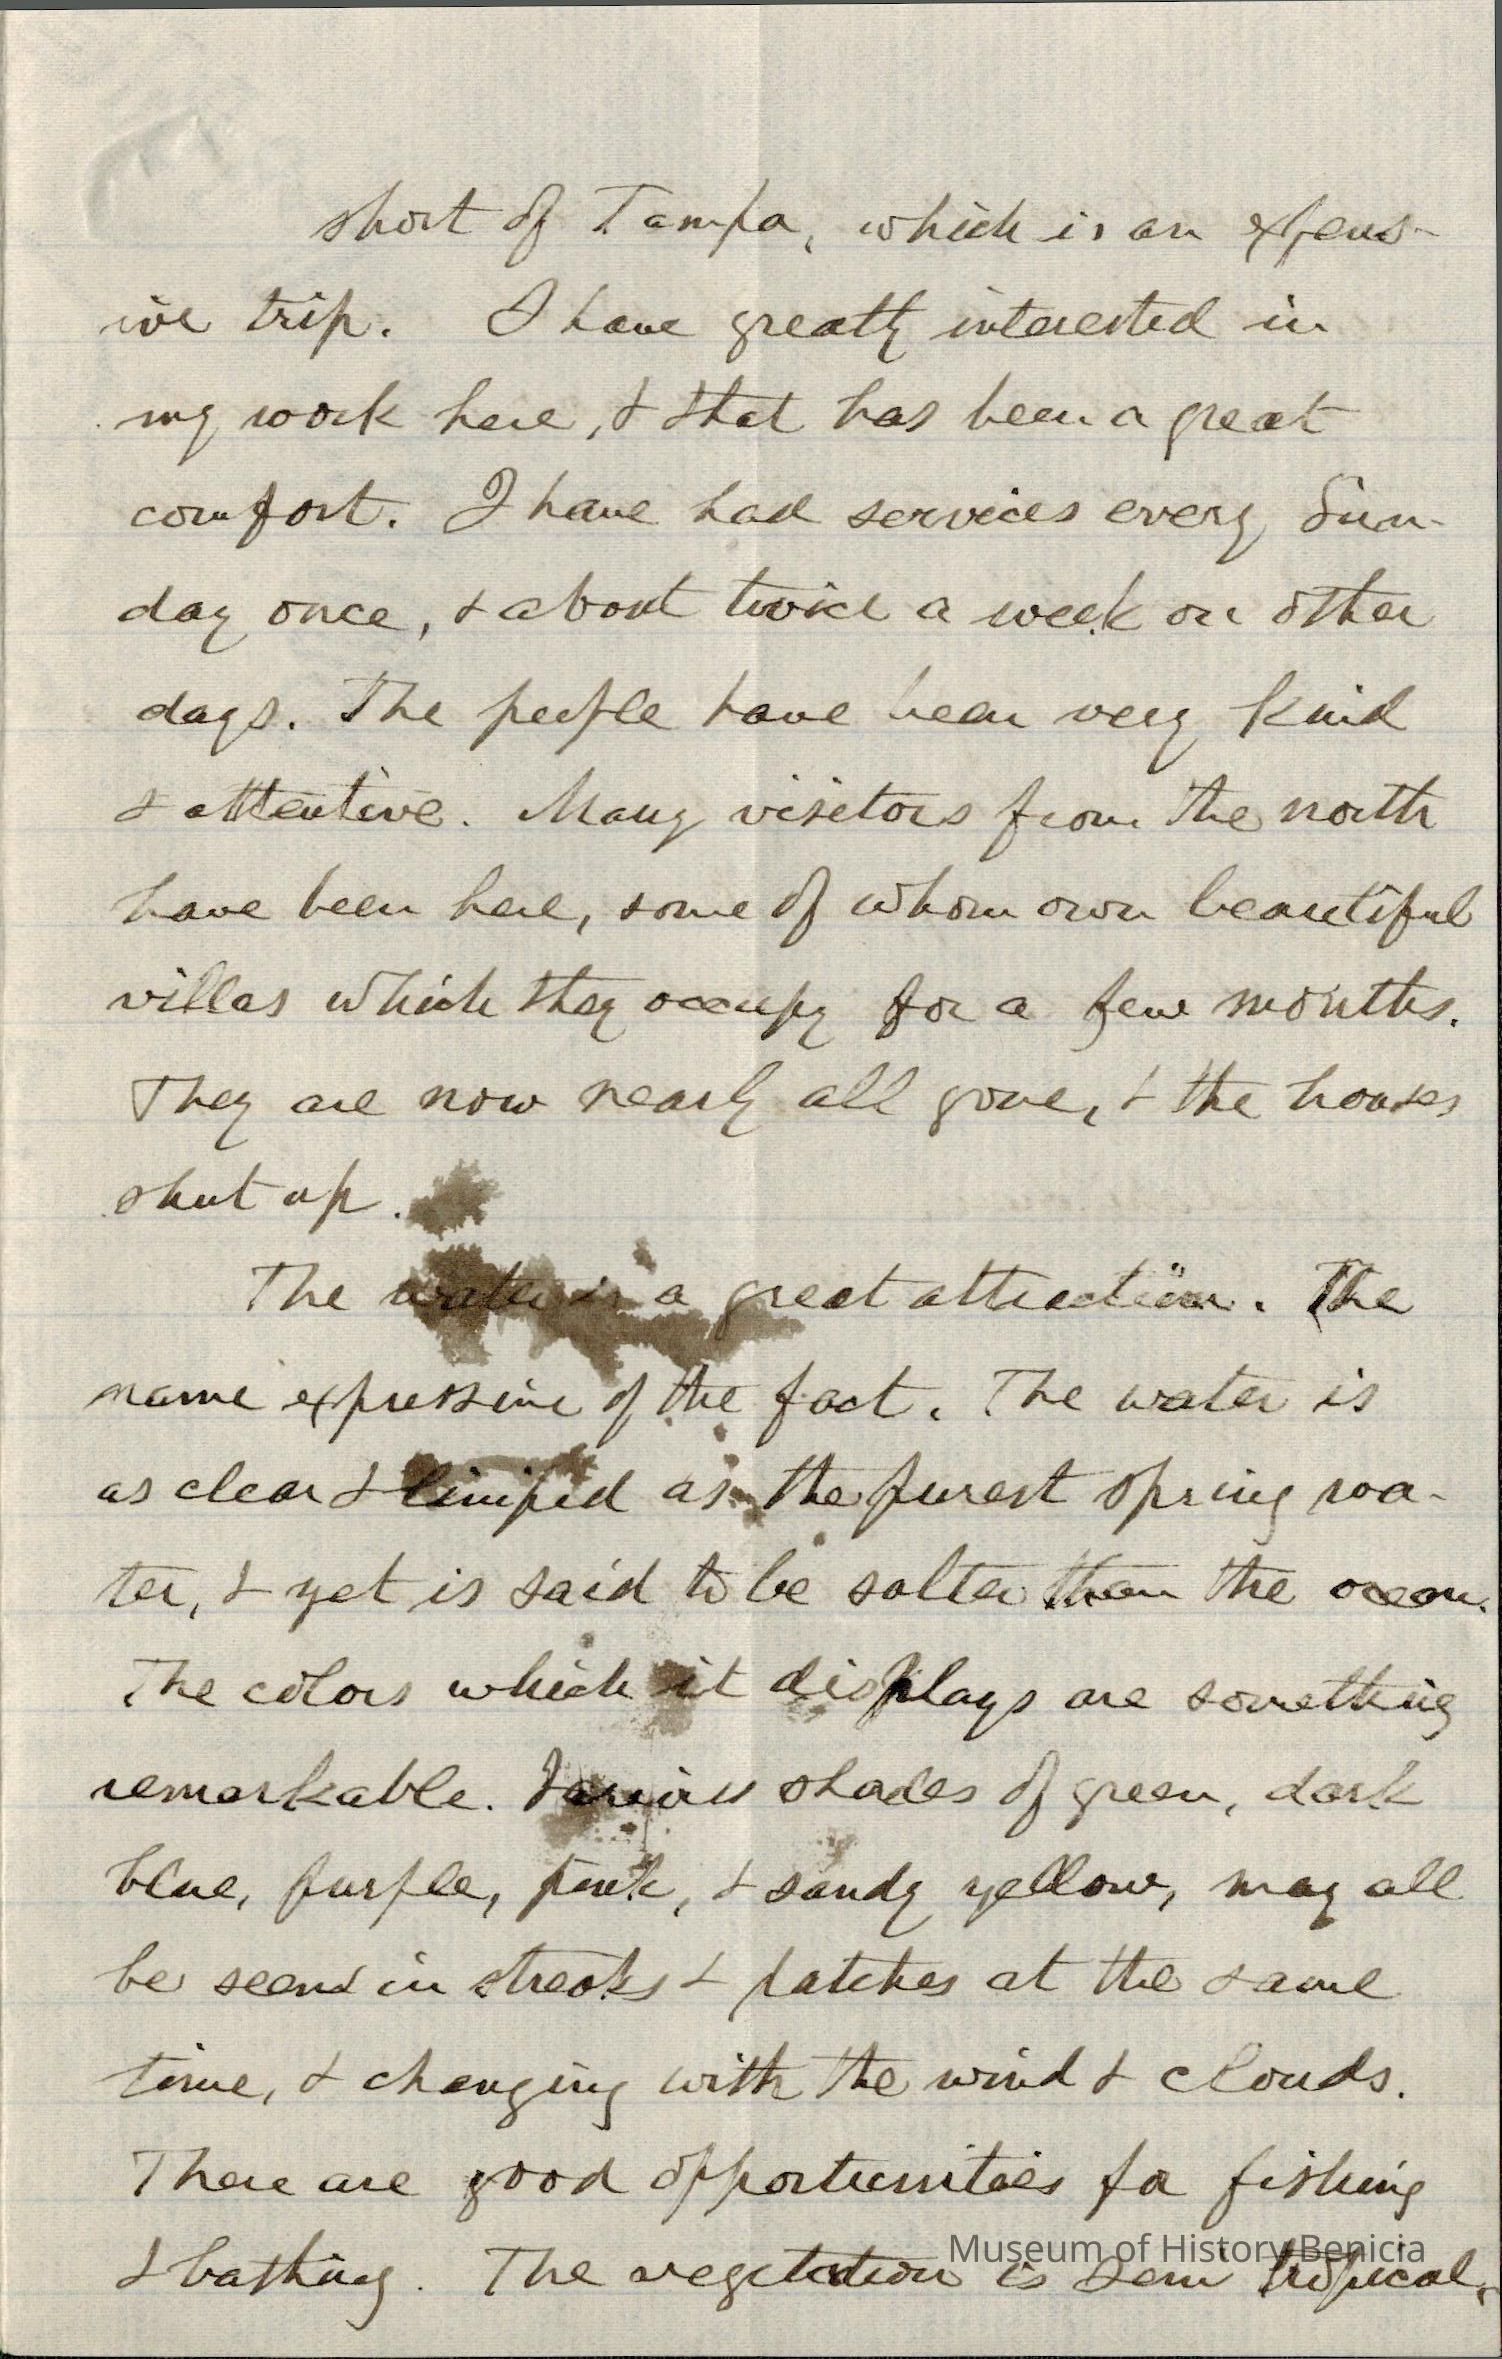 short of Tampa, which is an expens-
ive trip. I have greatly interested in
my work here, & that has been a great
comfort. I have had services every Sun-
day once, & about twice a week on other
days. The people have been very kind
& attentive. Many visitors from the north
have been here, some of whom own beautiful
villas which they occupy for a few months.
They are now nearly all gone, & the houses
shut up.
The water is a great attraction. The
name expressive of the fact. The water is
as clear & limpid as the purest spring wa-
ter, & yet is said to be salter than the ocean.
The colors which it displays are something
remarkable. Various shades of green, dark
blue, purple, pink, & sandy yellow, may all
be seen in streaks & patches at the same
time, & changing with the wind & clouds.
There are good opportunities for fishing
& bathing. The vegetation is semi tropical,
Museum of History Benicia